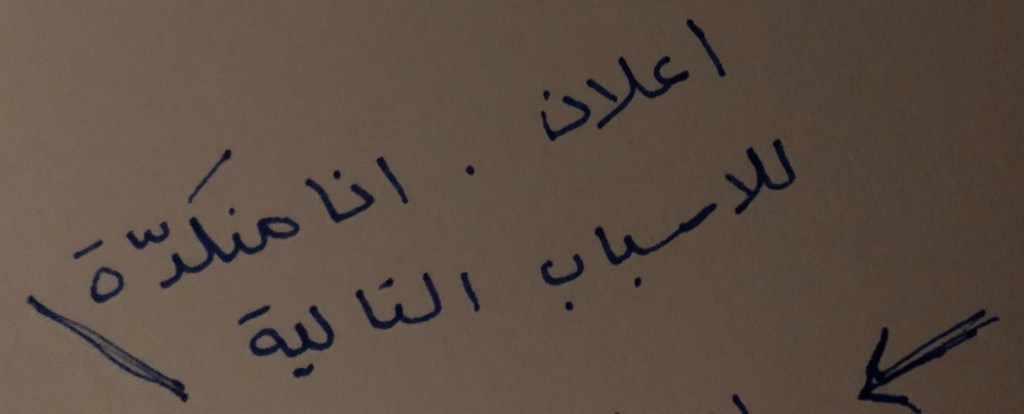 اعلان . انا منكدّة
للاسباب التالية